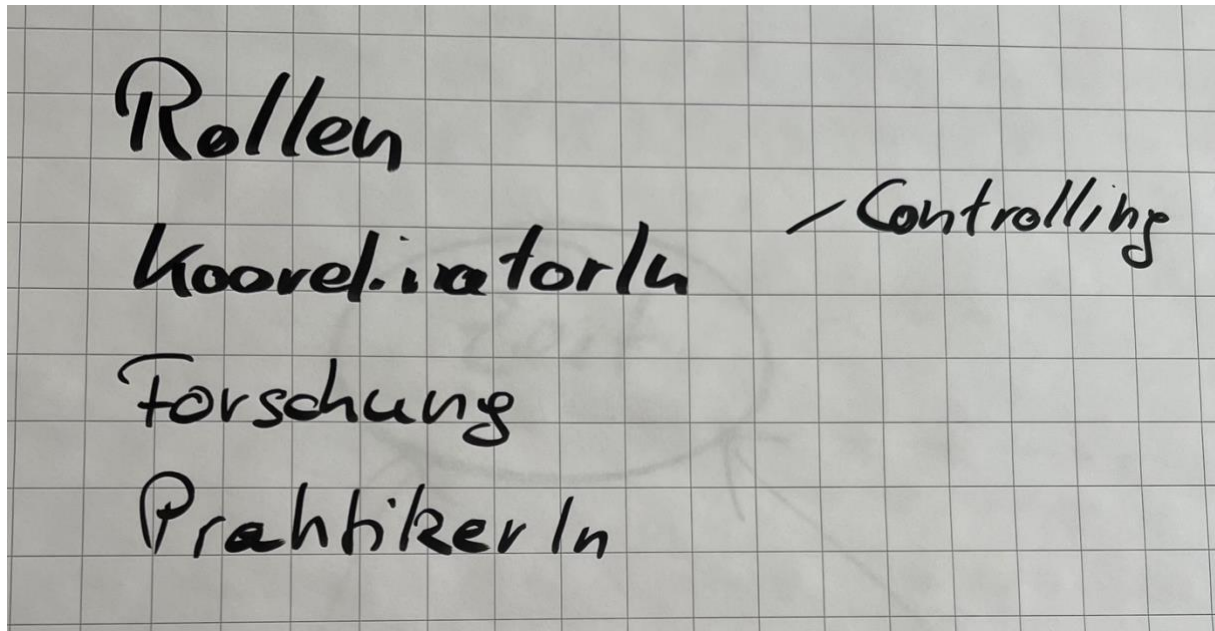 Rollen
KoordinatorIn / Controlling
Forschung
PraktikerIn